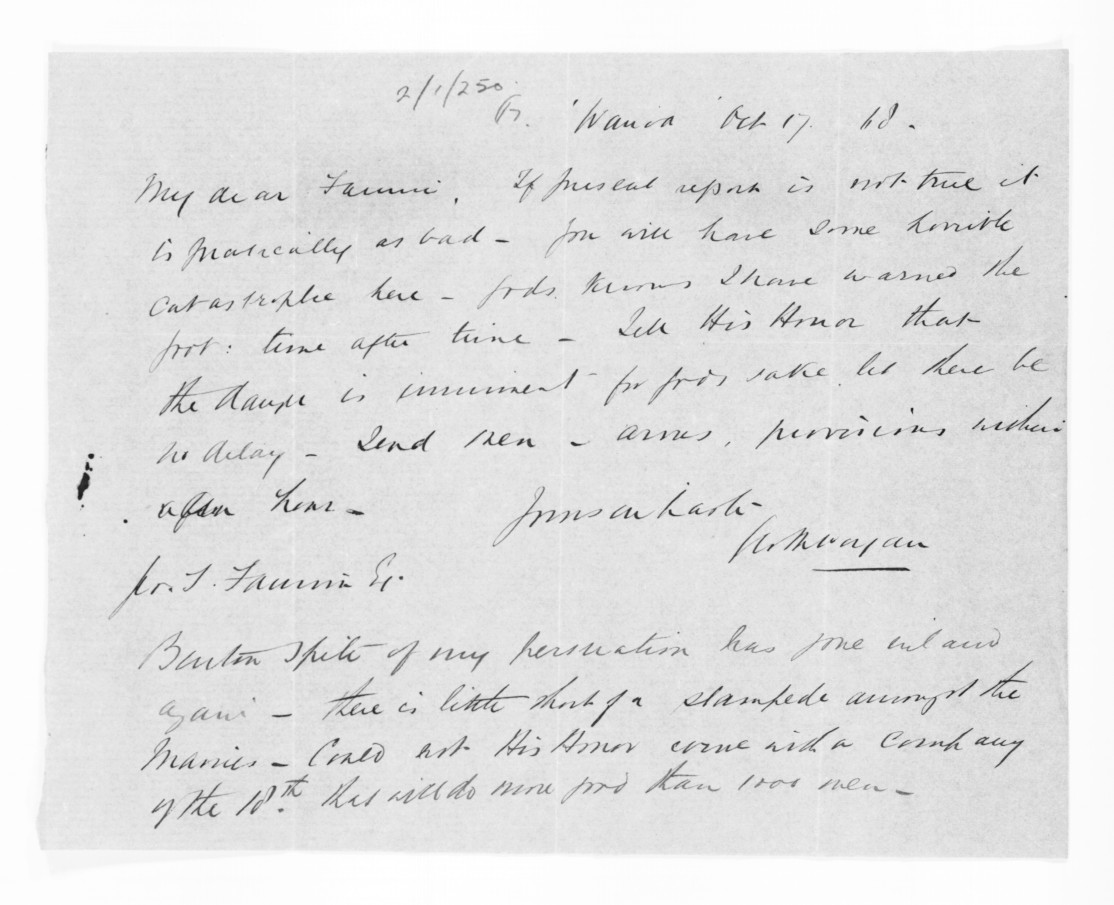 2/1/250
Wairoa Oct 17. 68 -
My dear Fannin, If present report is not true it
is pratically as bad - you will have some horrible
catastrophe here - Gods knows I have warned the
Govt: time after time - Tell His Honor that
the danger is imminent for Gods sake let there be
no delay - Send men - arms, provisions within
an hour -
Yours in haste
Geo. T. Fannin Esq.
Benton spite of my persuation has gone inland
again - there is little short of a stampede amongst the
Maories - Could not His Honor come with a Company
of the 18th that will do more good than 1000 men -